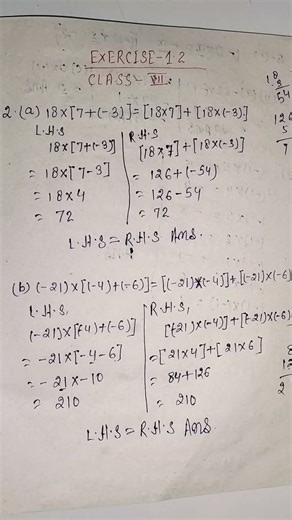 EXERCISE-1.2
CLASS-VII
2.(a) 18×[7+(-3)]=[18×7]+[18×(-3)]
L.H.S
18×[7+(-3)]
= 18×[7-3]
= 18×4
= 72
R.H.S
[18×7]+[18×(-3)]
= 126+(-54)
= 126-54
= 72
L.H.S=R.H.S Ans.
(b) (-21)×[(-4)+(-6)]=[(-21)×(-4)]+[(-21)×(-6)
L.H.S,
(-21)×[(-4)+(-6)]
= -21×[-4-6]
= -21×-10
= 210
R.H.S,
[(-21)×(-4)]+[(-21)×(-6)
=[21×4]+[21×6]
= 84+126
= 210
L.H.S=R.H.S Ans.
18
54
126